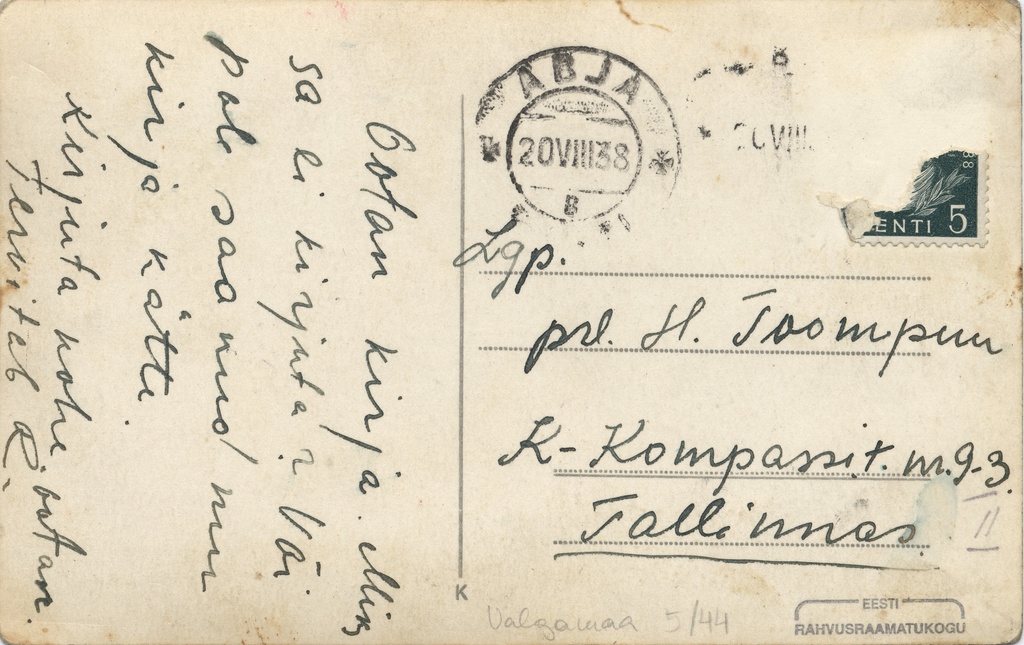 Ootan kirja. Miks
sa ei kirjuta? Või
pole saanud minu
kirja kätte.
Kirjuta kohe, ootan.
Tervitab R.
ABJA
20 VIII 38
B
20 VIII
SENTI 5
38
Lgp.
prl. H. Toompuu
K-Kompassi t. m. 9-3.
Tallinnas
II
K
Valgamaa 5/44
EESTI
RAHVUSRAAMATUKOGU